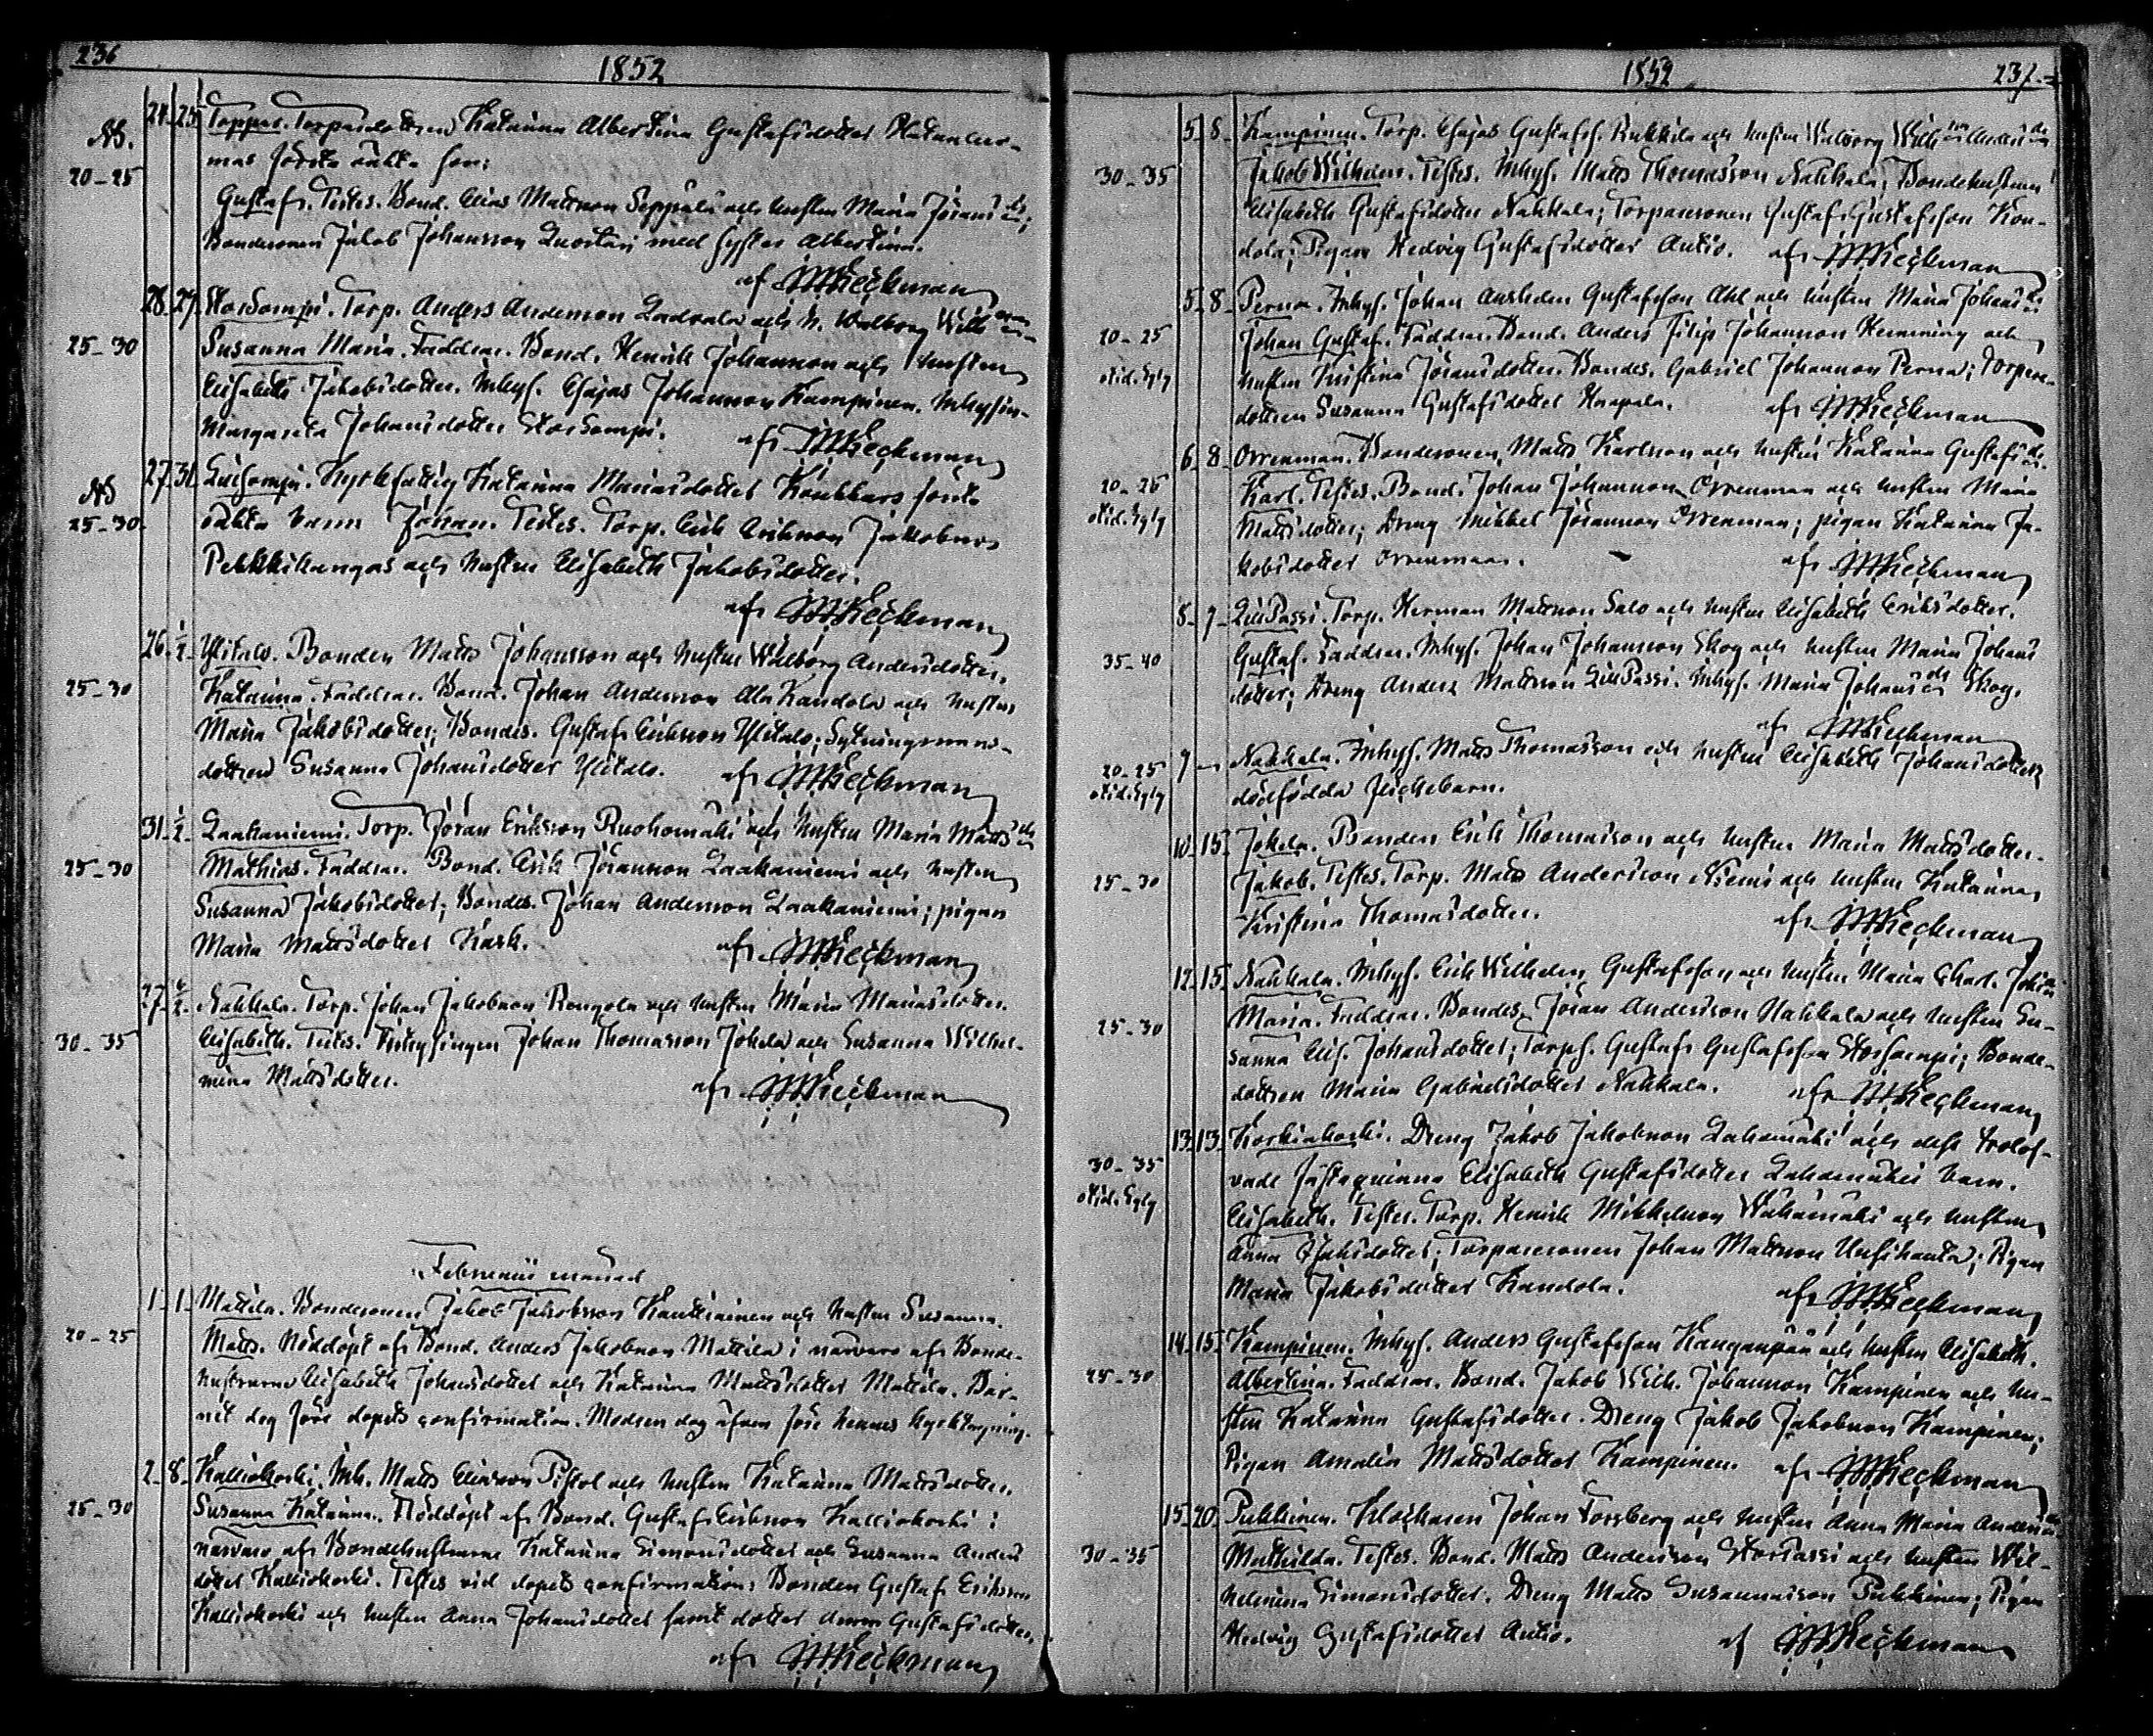 236
1852
NB. 24. 25. Toppar. Torparedottren Katarina Albertina Gustafsdotter
20-25 första oäkta son:
Gustaf. Testes. Bond. Elias Mattsson Seppälä och hustru Maria Jörans dr;
Bondesonen Jakob Johansson Luostari med syster Albertina.
af MHeickman
28. 29. Storsompi. Torp. Anders Andersson Ladvala och h. Walborg
25-30 Susanna Maria. Faddrar. Bond. Henrik Johansson och hustru
Elisabeth Jakobsdotter. Inhys. Esajas Johansson Kampinen. Inhysin.
Margareta Johansdotter Storsompi. af MHeickman
NB 27. 31. Lillsompi. Kyrkfattig Katarina Mariasdotter första
25-30. oäkta barn Johan. Testes. Torp. Erik Eriksson Jakobsson
Pekkikangas och hustru Elisabeth Jakobsdotter.
af MHeickman
26. 1/2 Ylitalo. Bonden Matts Johansson och hustru Walborg Andersdotter.
25-30 Katarina. Faddrar. Bond. Johan Andersson Ala Kandola och hustru
Maria Jakobsdotter; Bondes. Gustaf Eriksson Ylitalo; Sytningsmans-
dottren Susanna Johansdotter Ylitalo. af MHeickman
31. 1/2 Laakaniemi. Torp. Jöran Eriksson Ruohomäki och hustru Maria Matts dr
25-30 Mathias. Faddrar. Bond. Erik Jöransson Laakaniemi och hustru
Susanna Jakobsdotter; Bondes. Johan Andersson Laakaniemi; pigan
Maria Mattsdotter Kark. af MHeickman
27. Nahkala. Torp. Johan Jakobsson Rengola och hustru Maria Mariasdotter.
30-35 Elisabeth. Testes. Inhysingen Johan Thomasson Jokela och Susanna Wilhel-
mina Mattsdotter. af MHeickman
Februarii månad
1. 1. Mattila. Bondesonen Jakob Jakobsson Kauttiainen och hustru Susanna.
20-25 Matts. Nöddöpt af Bond. Anders Jakobsson Mattila i närvaro af Bonde-
hustrurne Elisabeth Johansdotter och Katarina Mattsdotter Mattila. Bar-
net dog före dopets confirmation. Modren dog äfven före hennes kyrktagning.
2. 8. Kalliokoski. Inh. Matts Eliasson Pistol och hustru Katarina Mattsdotter.
25-30 Susanna Katarina. Nöddöpt af Bond. Gustaf Eriksson Kalliokoski i
närvaro af Bondehustrurne Katarina Simonsdotter och Susanna Anders
dotter Kalliokoski. Testes vid dopets confirmation: Bonden Gustaf Eriksson
Kalliokoski och hustru Anna Johansdotter samt dotter Anna Gustafsdotter.
af MHeickman
1852
237.
5. 8. Kampinen. Torp. Esajas Gustafss. Rukkila och hustru Walborg
30-35 Jakob Wilhelm. Testes. Inhys. Matts Thomasson Nahkala; Bondehustrun
Elisabeth Gustafsdotter Nahkala; Torparesonen Gustaf Gustafsson Kon-
dola; Pigan Hedvig Gustafsdotter Autio. af MHeickman
5. 8. Perna. Inhys. Johan Anshelm Gustafsson Ahl och hustru Maria Johans dr
20-25 Johan Gustaf. Faddrar. Bond. Anders Filip Johansson Hemming och
hustru Kristina Jöransdotter. Bondes. Gabriel Johansson Perna; Torpare-
dottren Susanna Gustafsdotter Haapala. af MHeickman
6. 8. Orrenmaa. Bondesonen Matts Karlsson och hustru Katarina Gustafs dr.
20-25 Karl. Testes. Bond. Johan Johansson Orrenmaa och hustru Maria
Mattsdotter; Dreng Mikkel Jöransson Orrenmaa; pigan Katarina Ja-
kobsdotter Orrenmaa. af MHeickman
8. 9. LillPassi. Torp. Herman Mattsson Salo och hustru Elisabeth Eriksdotter.
35-40 Gustaf. Faddrar. Inhys. Johan Johansson Skog och hustru Maria Johans
dotter; Dreng Anders Mattsson LillPassi. Inhys. Maria Johans dr Skog.
af MHeickman
20-25 9 - Nahkala. Inhys. Matts Thomasson och hustru Elisabeth Johansdotters
dödfödda flickebarn.
10. 15. Jokela. Bonden Erik Thomasson och hustru Maria Mattsdotter.
25-30 Jakob. Testes. Torp. Matts Andersson Niemi och hustru Katarina
Kristina Thomasdotter. af MHeickman
12. 15. Nahkala. Inhys. Erik Wilhelm Gustafsson och hustru Maria Johan
25-30 Maria. Faddrar. Bondes. Jöran Andersson Nahkala och hustru Su-
sanna Elis. Johansdotter; Torps. Gustaf Gustafsson Storsompi; Bonde-
dottren Maria Gabrielsdotter Nahkala. af MHeickman
13. 13. Koskinkoski. Dreng Jakob Jakobsson Lahamäki och dess trolof-
30-35 vade fästeqvinna Elisabeth Gustafsdotter Lahamäkis barn.
Elisabeth. Testes. Torp. Henrik Mikkelsson Wähämäki och hustru
Anna Esaksdotter; Torparesonen Johan Mattsson Uusihauta; Pigan
Maria Jakobsdotter Kandola. af MHeickman
14. 15. Kampinen. Inhys. Anders Gustafsson Kanganpää och hustru Elisabeth.
25-30 Albertina. Faddrar. Bond. Jakob Wilh. Johansson Kampinen och hu-
stru Katarina Gustafsdotter. Dreng Jakob Jakobsson Kampinen;
Pigan Amalia Mattsdotter Kampinen. af MHeickman
15. 20. Pukkinen. Klockaren Johan Forsberg och hustru Anna Maria Anders dr
30-35 Mathilda. Testes. Bond. Matts Andersson StorPassi och hustru Wil-
helmina Simonsdotter. Dreng Matts Susannasson Pukkinen; Pigan
Hedvig Gustafsdotter Autio. af MHeickman